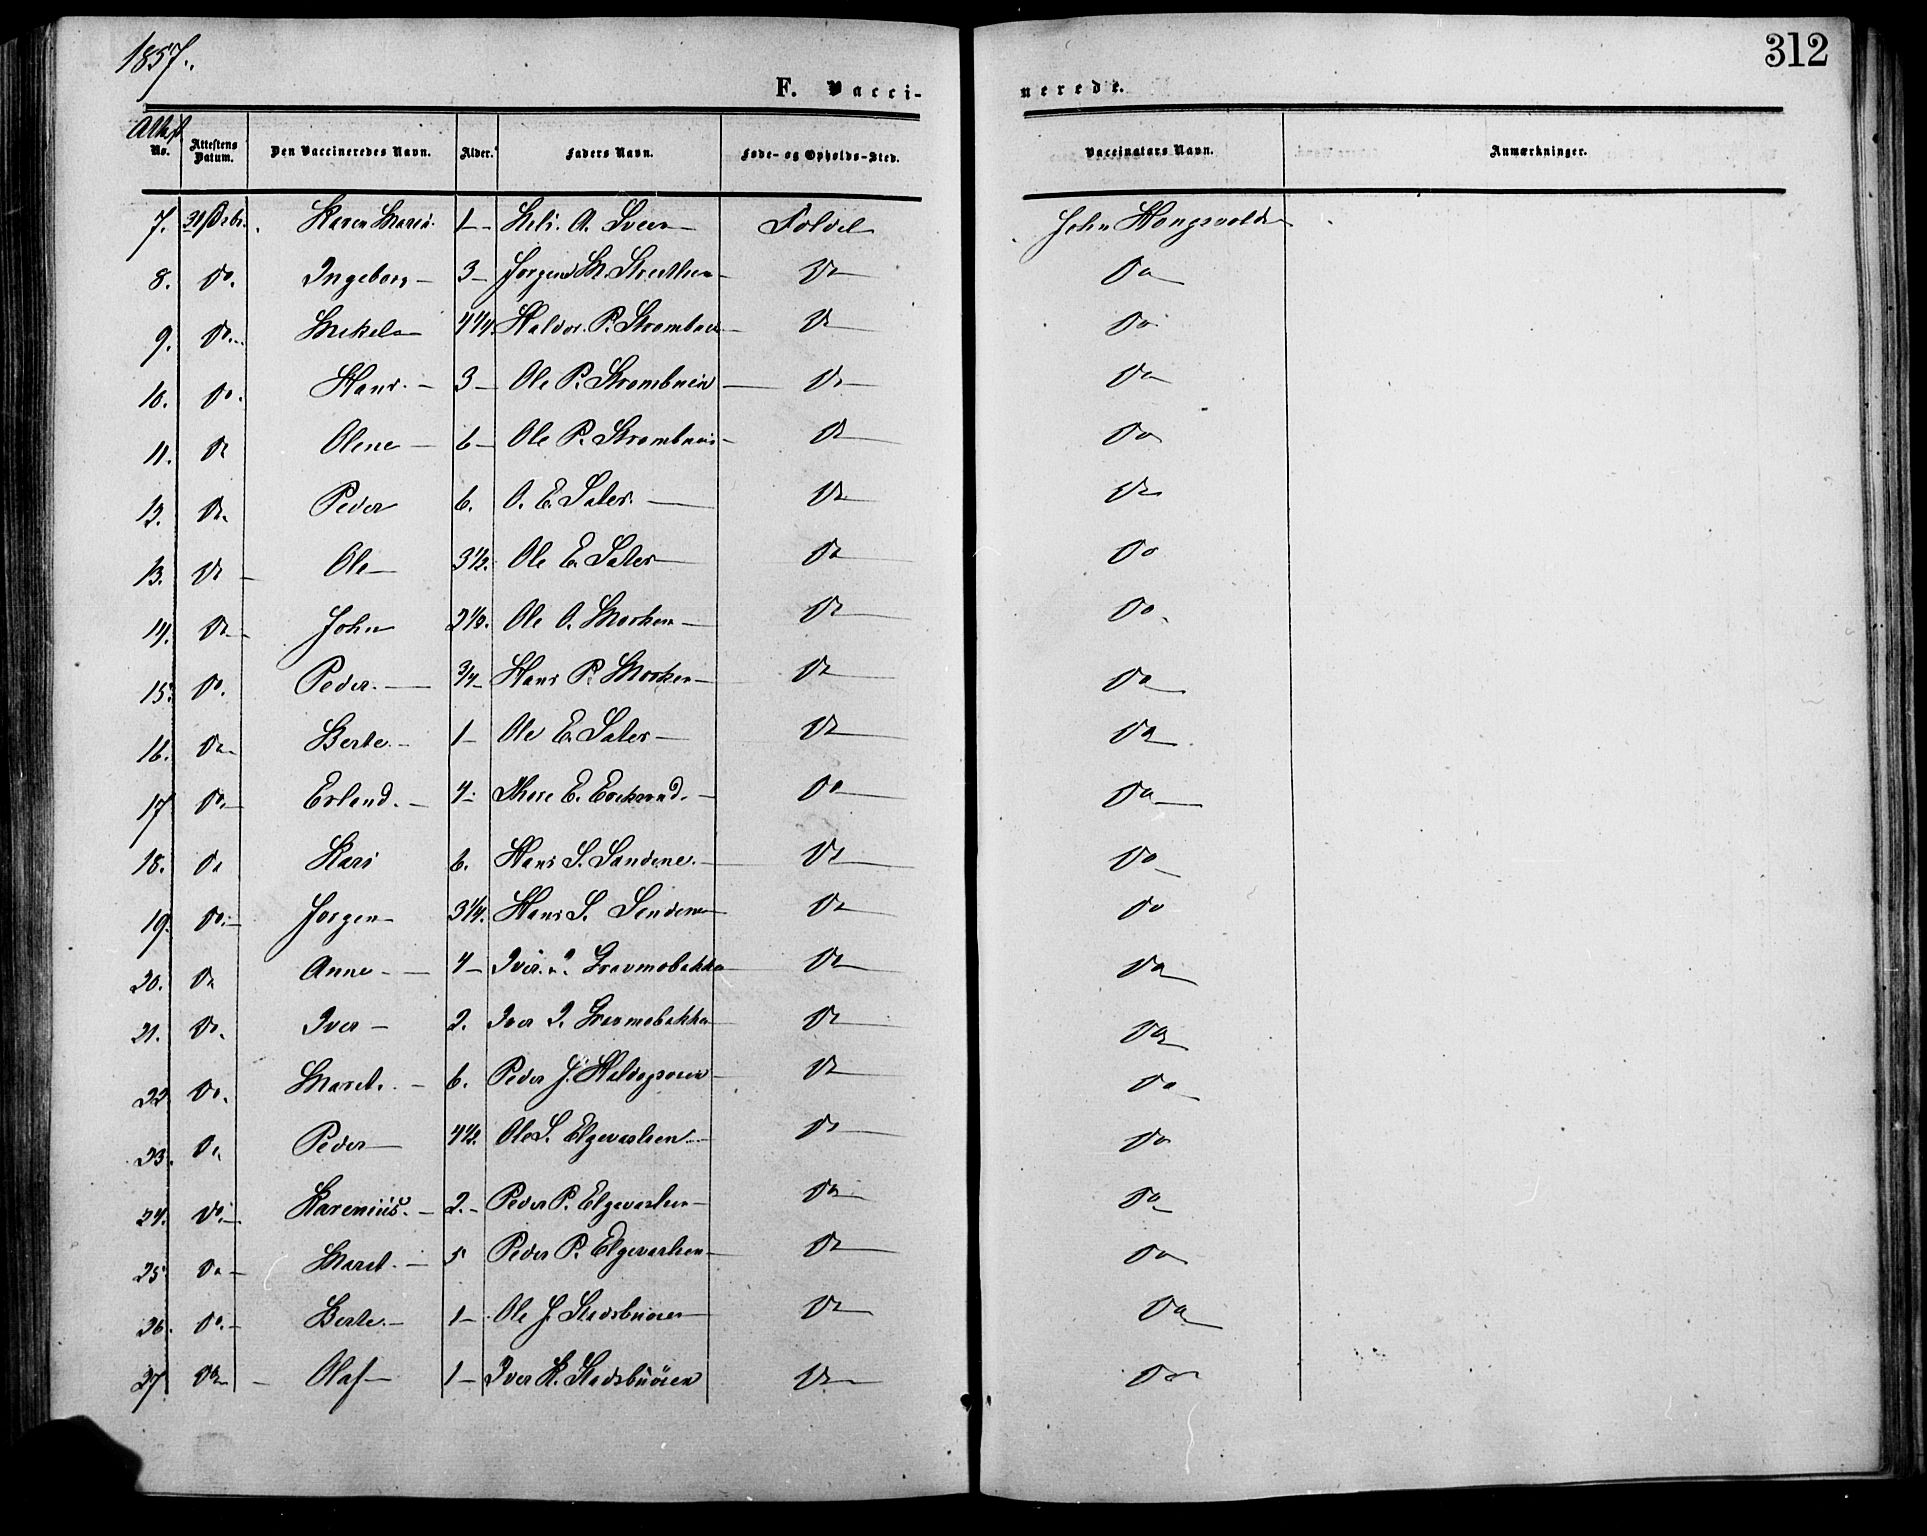 1857.
312
F. Vacci-
nerede.
Attest
No. Attestens Datum. Den Vaccineredes Navn. Alder. Faders Navn. Føde- og Opholds-Sted. Vaccinators Navn. Anmærkninger.
7. 31 Karen Marie. 1 – A. Foldel John
8. Do. Ingeborg – 3 – Jørgen M. Do Do
9. Do. Mikel 4 1/4. Haldor P. Do Do
10. Do. Hans. – 3 – Ole P. Strømbuen Do Do
11. Do Olene – 6 – Ole P. Strømbuen Do Do
12. Do. Peder 6. O. E. Sater. Do Do
13. Do Ole – 3 1/2. Ole E. Sater Do Do
14. Do John 2 1/2. Ole O. Morken Do Do.
15. Do. Peder. 3/4 Hans P. Morken Do Do
16. Do Berte. – 1 – Ole E. Sater Do Do
17 Do. Erlend. – 4 – E. Do Do
18. Do Kari 6. Hans S. Sandene. Do Do
19. Do. Jørgen – 3 1/4. Hans S. Sandene Do Do
20. Do Anne – 4 – Iver Gravmobakken Do Do
21. Do. Iver – 2. Iver I. Gravmobakken Do Do
22 Do. Maret. – 6. Peder J. Do Do
23. Do Peder 4 1/2. Ole S. Elgevaslien Do Do
24. Do. Karenius. – 2. – Peder P. Elgevaslien Do Do
25 Do – Maret. – 5 Peder P. Elgevaslien Do Do
26. Do. – Berte. – 1 – Ole J. Stadsbuøien Do Do
27 Do Olaf 1 – Iver K. Stadsbuøien Do Do